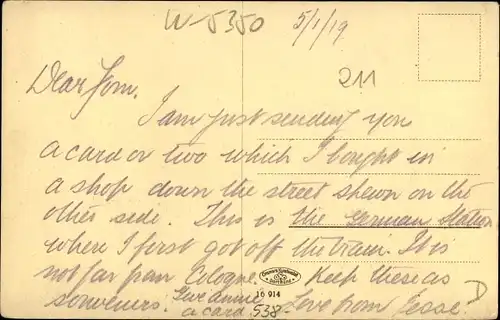 W-5350
5/1/19
211
Dear Tom.
I am just sending you
a card or two which I bought in
a shop down the street shewn on the
other side. This is the German Station
where I first got off the tram. It is
not far from Cologne. Keep these as
souvenirs. Give Annie a card. Love from Jesse.
16 914
538-
D